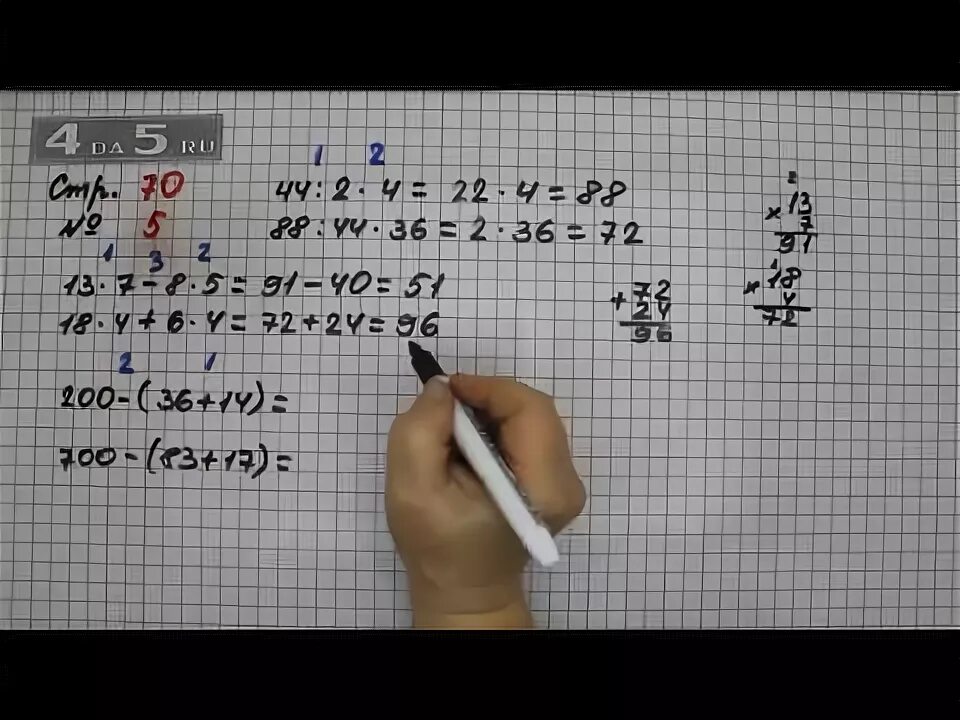 4 DA 5 RU
Стр. 70
№ 5
1 2
44:2·4= 22·4=88
88:44·36=2·36=72
1 3 2
13·7-8·5=91-40=51
18·4+6·4=72+24=96
2 1
200-(36+14)=
700-(83+17)=
2
×13
7
91
+72
24
96
1
×18
4
72